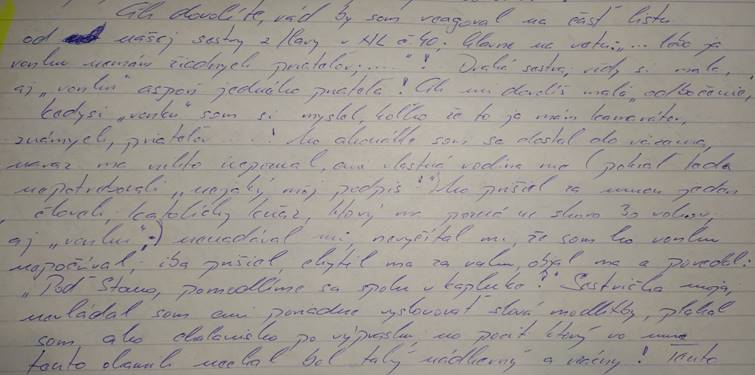 Ak dovolíte, rád by som reagoval na časť listu
od našej sestry z Ilavy v NL č. 40; hlavne na vetu: „... lebo ja
vonku nemám žiadnych priateľov; ...."! Drahá sestra, vždy si mala,
aj „vonku" aspoň jedného priateľa! Ak mi dovolíš malú „odbočenie,
kedysi „vonku" som si myslel, koľko že to ja mám kamarátov,
známych, priateľov ....! No akonáhle som sa dostal do väzenia,
naraz ma nikto nepoznal, ani vlastná rodina nie (pokiaľ teda
nepotrebovali „nejaký môj podpis"!) No prišiel za mnou jeden
človek katolícky kňaz, ktorý ma pozná už skoro 30 rokov,
aj „vonku".) nenadával mi, nevyčítal mi, že som ho vonku
nepočúval; iba prišiel, chytil ma za ruku, objal ma a povedal:
„Poď Stano, pomodlíme sa spolu v kaplnke?" Sestrička moja,
nevládal som ani poriadne vyslovovať slová modlitby, plakal
som ako chalanisko po výprasku no pocit ktorý vo mne
tento okamih nechal bol taký nádherný a vzácny! Tento